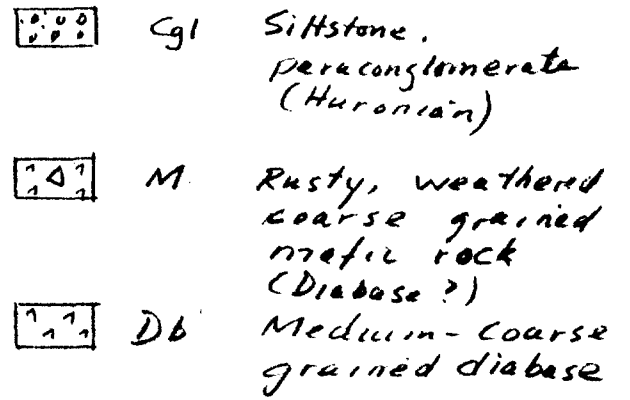 Cgl Siltstone.
paraconglomerate
(Huronian)
M Rusty, weathered
coarse grained
mafic rock
(Diabase?)
Db Medium-coarse
grained diabase